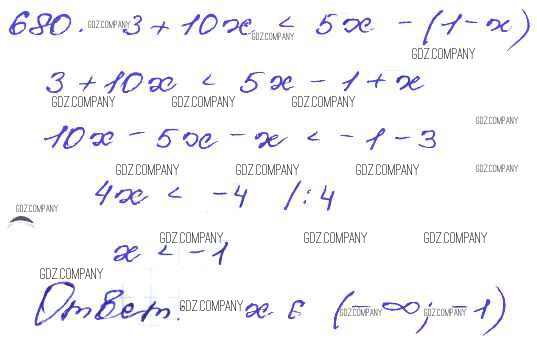 680. GDZ.COMPANY 3 + 10x < 5x - (1 - x)
GDZ.COMPANY GDZ.COMPANY
3 + 10x < 5x - 1 + x
GDZ.COMPANY GDZ.COMPANY GDZ.COMPANY
GDZ.COMPANY
10x - 5x - x < -1 - 3
GDZ.COMPANY GDZ.COMPANY GDZ.COMPANY GDZ.COMPANY
4x < -4 /:4
GDZ.COMPANY
GDZ.COMPANY GDZ.COMPANY GDZ.COMPANY
x < -1
GDZ.COMPANY
Ответ. GDZ.COMPANY x ∈ (-∞; -1)
GDZ.COMPANY GDZ.COMPANY